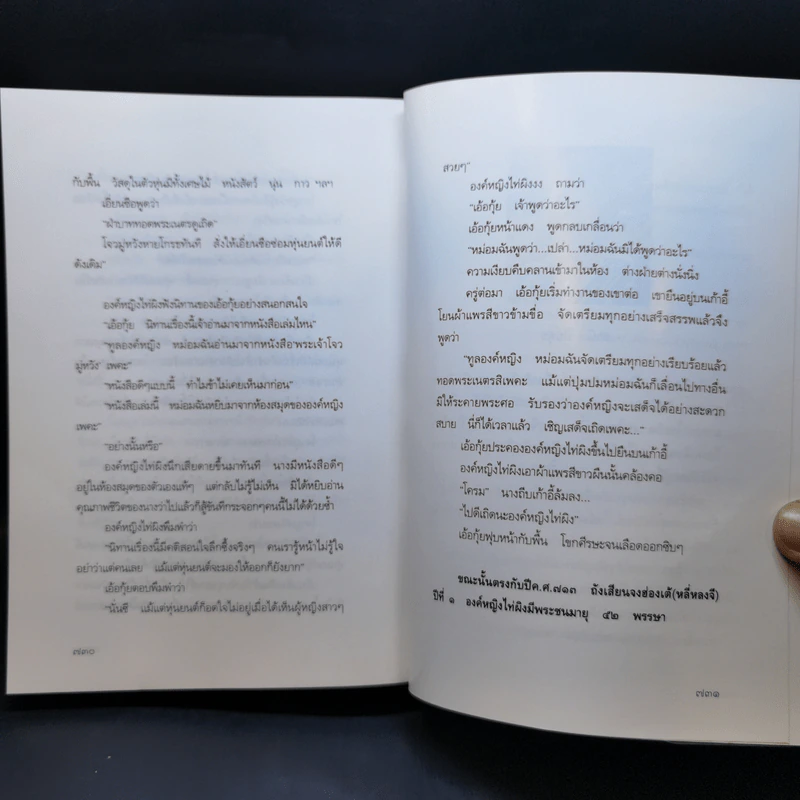 กับพื้น วัสดุในตัวหุ่นมีทั้งเศษไม้ หนังสัตว์ นุ่น กาว ฯลฯ
เอี่ยนซือพูดว่า
"ฝ่าบาททอดพระเนตรดูเถิด"
โจวมู่หวังหายโกรธทันที สั่งให้เอี่ยนซือซ่อมหุ่นยนต์ให้ดี
ดังเดิม"
องค์หญิงไท่ผิงฟังนิทานของเอ้อกุ้ยอย่างสนอกสนใจ
"เอ้อกุ้ย นิทานเรื่องนี้เจ้าอ่านมาจากหนังสือเล่มไหน"
"ทูลองค์หญิง หม่อมฉันอ่านมาจากหนังสือ'พระเจ้าโจว
มู่หวัง' เพคะ"
"หนังสือดีๆแบบนี้ ทำไมข้าไม่เคยเห็นมาก่อน"
"หนังสือเล่มนี้ หม่อมฉันหยิบมาจากห้องสมุดขององค์หญิง
เพคะ"
"อย่างนั้นหรือ"
องค์หญิงไท่ผิงนึกเสียดายขึ้นมาทันที นางมีหนังสือดีๆ
อยู่ในห้องสมุดของตัวเองแท้ๆ แต่กลับไม่รู้ไม่เห็น มิได้หยิบอ่าน
คุณภาพชีวิตของนางว่าไปแล้วก็สู้ขันทีกระจอกๆคนนี้ไม่ได้ด้วยซ้ำ
องค์หญิงไท่ผิงพึมพำว่า
"นิทานเรื่องนี้มีคติสอนใจลึกซึ้งจริงๆ คนเรารู้หน้าไม่รู้ใจ
อย่าว่าแต่คนเลย แม้แต่หุ่นยนต์จะมองให้ออกก็ยังยาก"
เอ้อกุ้ยตอบพึมพำว่า
"นั่นซี แม้แต่หุ่นยนต์ก็อดใจไม่อยู่เมื่อได้เห็นผู้หญิงสาวๆ
๗๓๐
สวยๆ"
องค์หญิงไท่ผิงงง ถามว่า
"เอ้อกุ้ย เจ้าพูดว่าอะไร"
เอ้อกุ้ยหน้าแดง พูดกลบเกลื่อนว่า
"หม่อมฉันพูดว่า...เปล่า...หม่อมฉันมิได้พูดว่าอะไร"
ความเงียบคืบคลานเข้ามาในห้อง ต่างฝ่ายต่างนิ่งนิ่ง
ครู่ต่อมา เอ้อกุ้ยเริ่มทำงานของเขาต่อ เขายืนอยู่บนเก้าอี้
โยนผ้าแพรสีขาวข้ามขื่อ จัดเตรียมทุกอย่างเสร็จสรรพแล้วจึง
พูดว่า
"ทูลองค์หญิง หม่อมฉันจัดเตรียมทุกอย่างเรียบร้อยแล้ว
ทอดพระเนตรสิเพคะ แม้แต่ปุ่มปมหม่อมฉันก็เลื่อนไปทางอื่น
มิให้ระคายพระศอ รับรองว่าองค์หญิงจะเสด็จได้อย่างสะดวก
สบาย นี่ก็ได้เวลาแล้ว เชิญเสด็จเถิดเพคะ..."
เอ้อกุ้ยประคององค์หญิงไท่ผิงขึ้นไปยืนบนเก้าอี้
องค์หญิงไท่ผิงเอาผ้าแพรสีขาวผืนนั้นคล้องคอ
"โครม" นางถีบเก้าอี้ล้มลง...
"ไปดีเถิดนะองค์หญิงไท่ผิง"
เอ้อกุ้ยฟุบหน้ากับพื้น โขกศีรษะจนเลือดออกซิบๆ
ขณะนั้นตรงกับปีค.ศ.๗๑๓ ถังเสียนจงฮ่องเต้(หลี่หลงจี)
ปีที่ ๑ องค์หญิงไท่ผิงมีพระชนมายุ ๕๒ พรรษา
๗๓๑